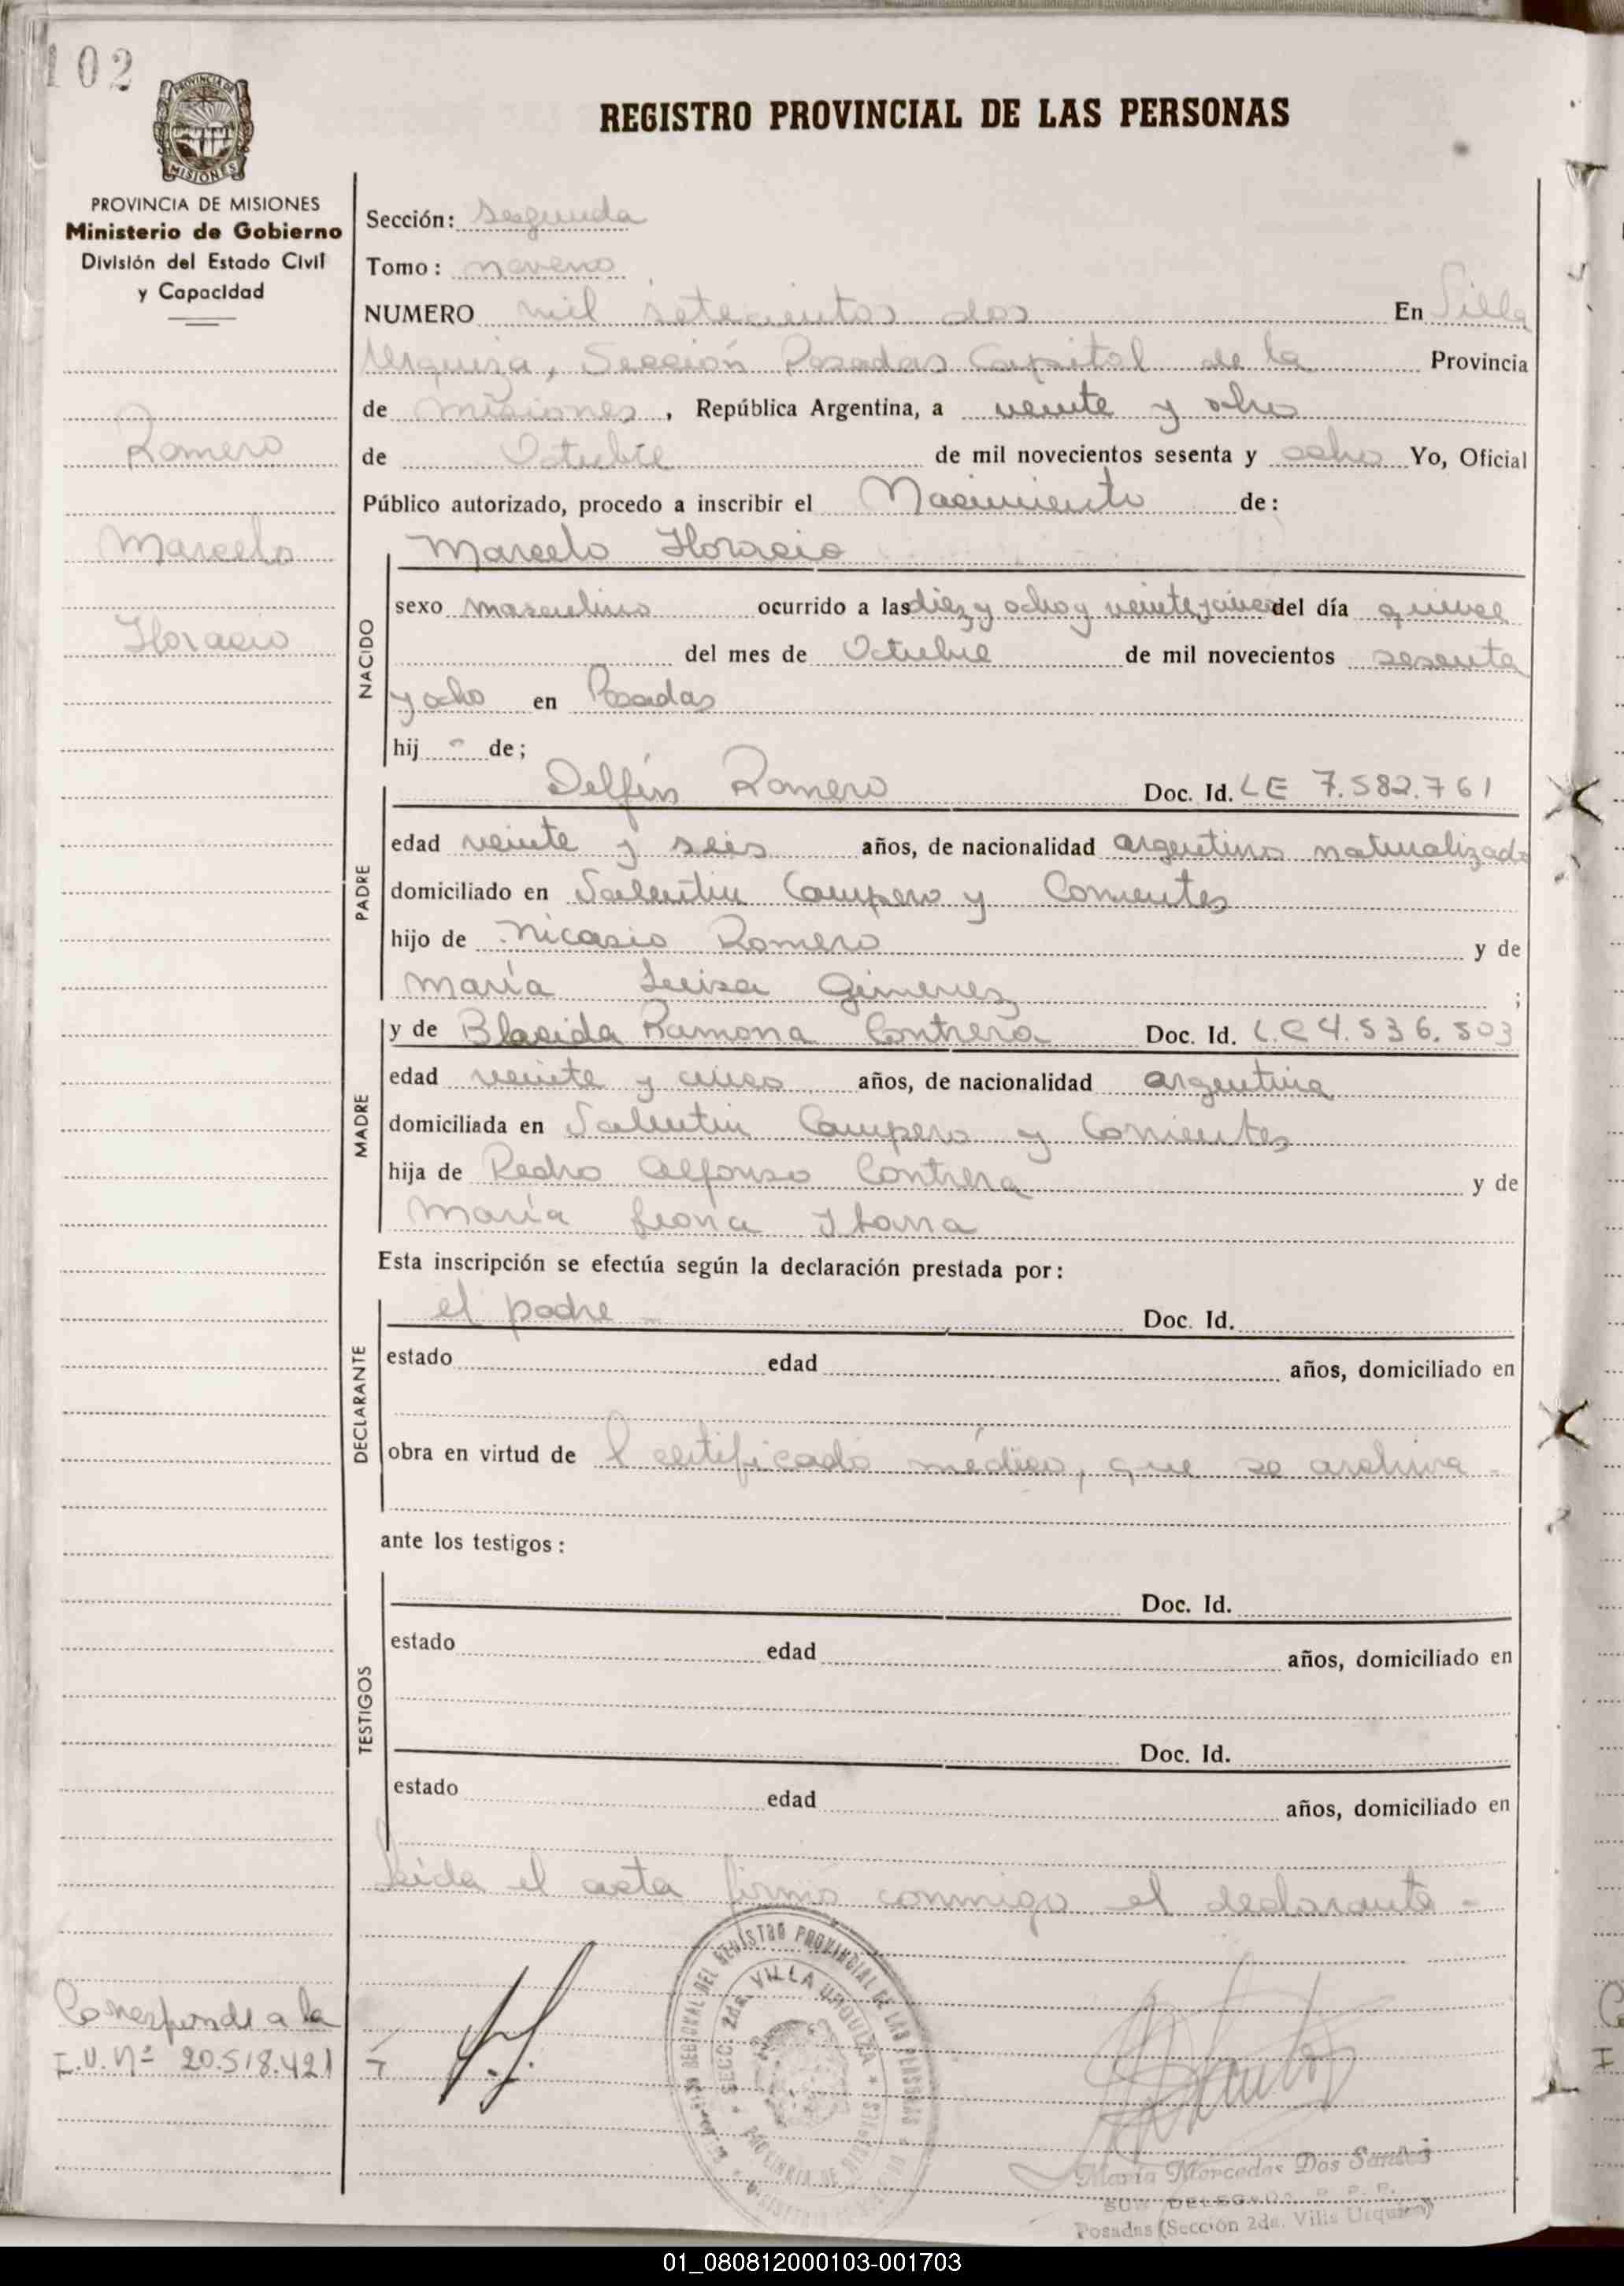 102
REGISTRO PROVINCIAL DE LAS PERSONAS
MISIONES
PROVINCIA DE MISIONES
Ministerio de Gobierno
División del Estado Civil
y Capacidad
Romero
Marcelo
Horacio
Sección: Segunda
Tomo: noveno
NUMERO mil setecientos dos En Villa
Urquiza, Sección Posadas Capital de la Provincia
de Misiones, República Argentina, a veinte y ocho
de Octubre de mil novecientos sesenta y ocho Yo, Oficial
Público autorizado, procedo a inscribir el Nacimiento de:
Marcelo Horacio
NACIDO
sexo masculino ocurrido a las diez y ocho y veinte y cinco del día quince
del mes de Octubre de mil novecientos sesenta
y ocho en Posadas
hij de;
PADRE
Delfín Romero Doc. Id. LE 7.582.761
edad veinte y seis años, de nacionalidad argentino naturalizado
domiciliado en Valentin Campero y Corrientes
hijo de Nicasio Romero y de
María Luisa Gimenez ;
MADRE
y de Blasida Ramona Contrera Doc. Id. L.C 4.536.503
edad veinte y cinco años, de nacionalidad argentina
domiciliada en Valentin Campero y Corrientes
hija de Pedro Alfonso Contrera y de
María Leona
Esta inscripción se efectúa según la declaración prestada por:
DECLARANTE
el padre - Doc. Id.
estado edad años, domiciliado en
obra en virtud de l certificado médico, que se archiva -
ante los testigos:
TESTIGOS
Doc. Id.
estado edad años, domiciliado en
Doc. Id.
estado edad años, domiciliado en
Leída el acta firma conmigo el declarante -
Corresponde a la
I.U. Nº 20.518.421
REGIONAL DEL REGISTRO PROVINCIAL DE LAS PERSONAS
SECC. 2da. VILLA URQUIZA
PROVINCIA DE MISIONES
María Mercedes Dos Santos
SUB DELEGADA R. P. P.
Posadas (Sección 2da. Villa Urquiza)
01_080812000103-001703